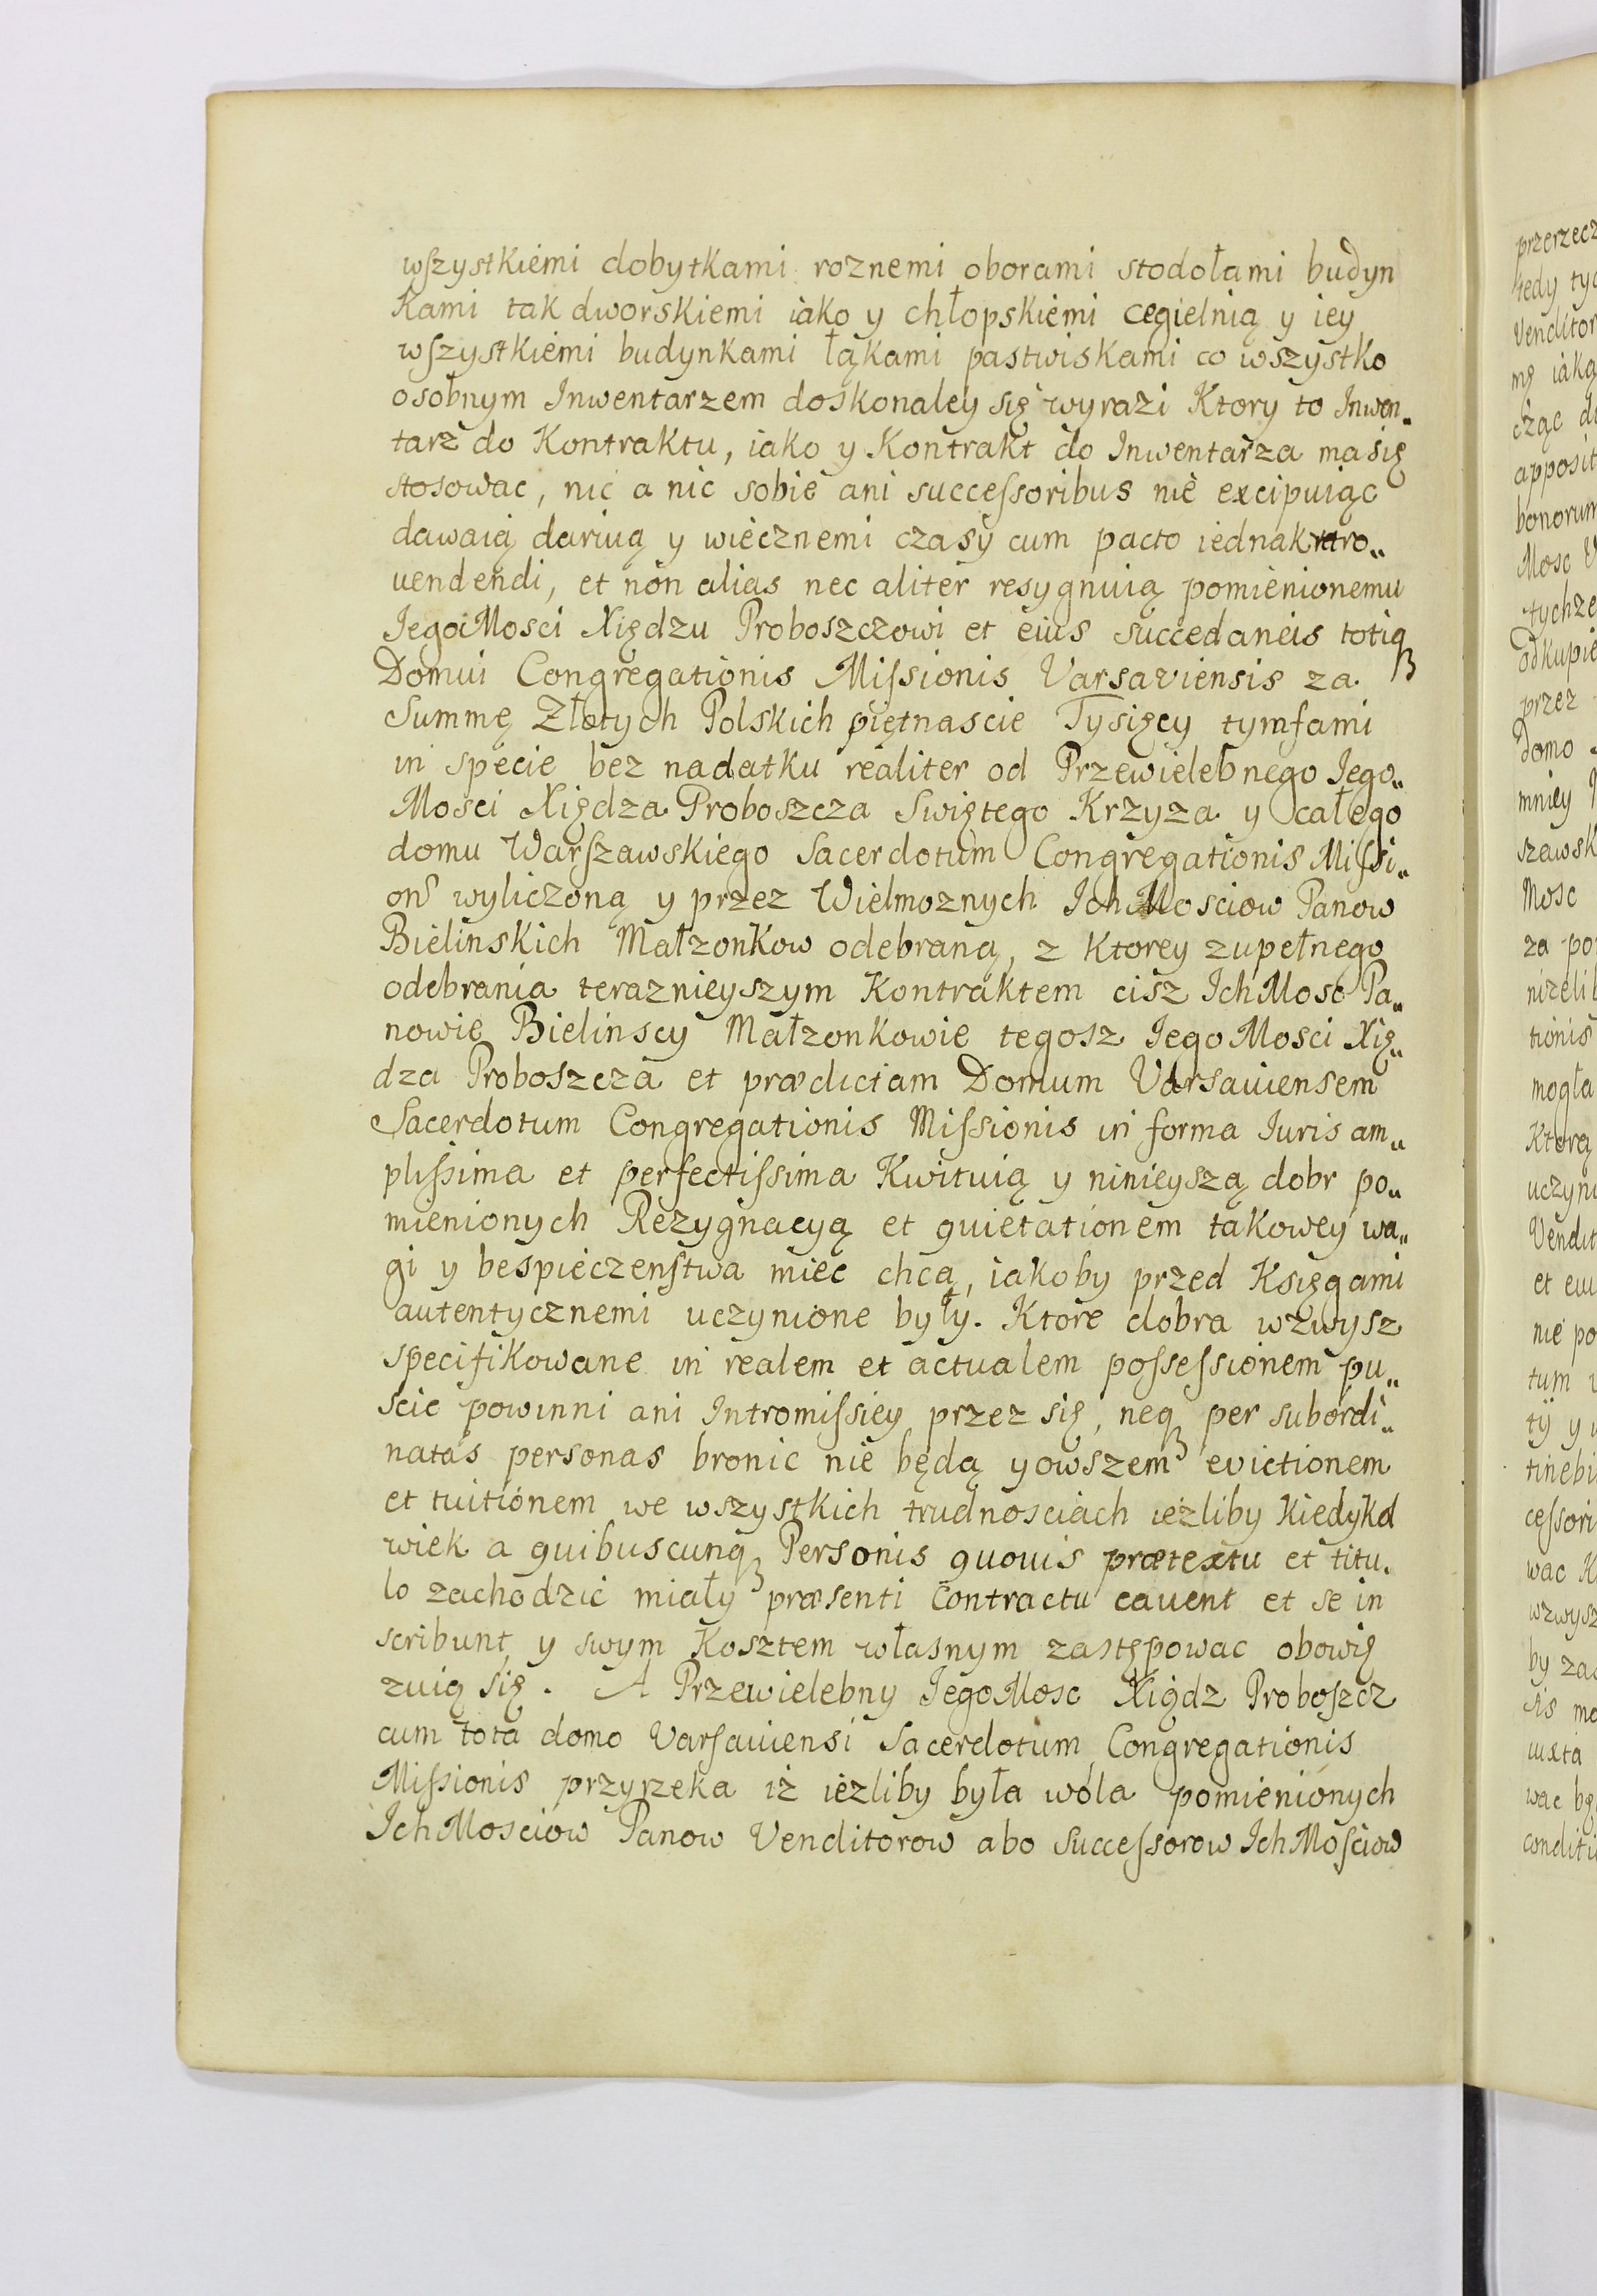 wszystkiemi dobytkami roznemi oborami stodołami budyn
kami tak dworskiemi iako y chłopskiemi cegielnią y iey
wszystkiemi budynkami łąkami pastwiskami co wszystko
osobnym Inwentarzem doskonaley się wyrazi Ktory to Inwen„
tarz do Kontraktu, iako y Kontrakt do Inwentarza ma się
stosowac, nic a nic sobie ani successoribus nie excipuiąc
dawaią daruią y wiecznemi czasy cum pacto iednak retro„
uendendi, et non alias nec aliter resygnuią pomienionemu
JegoMosci Xiędzu Proboszczowi et eius succedaneis totiq₃
Domui Congregationis Missionis Varsaviensis za
Summę Złotych Polskich piętnascie Tysięcy tymfami
in specie bez nadatku realiter od Przewielebnego Jego„
Mosci Xiędza Proboszcza Swiętego Krzyza y całego
domu Warszawskiego Sacerdotum Congregationis Missi„
onˢ wyliczoną y przez Wielmoznych IchMosciow Panow
Bielinskich Małzonkow odebraną, z Ktorey zupełnego
odebrania teraznieyszym Kontraktem cisz IchMosc Pa„
nowie Bielinscy Małzonkowie tegosz JegoMosci Xię„
dza Proboszcza et prædictam Domum Varsauiensem
Sacerdotum Congregationis Missionis in forma Iuris am„
plissima et perfectissima Kwituią y ninieyszą dobr po„
mienionych Rezygnacyą et quietationem takowey wa„
gi y bespieczenstwa miec chcą, iakoby przed Księgami
autentycznemi uczynione były. Ktore dobra wzwysz
specifikowane in realem et actualem possessionem pu„
scic powinni ani Intromissiey przez się, neq₃ per subordi„
natas personas bronic nie będą yowszem evictionem
et tuitionem we wszystkich trudnosciach iezliby Kiedykol
wiek a quibuscunq₃ Personis quouis prætextu et titu„
lo zachodzic miały præsenti Contractu cauent et se in
scribunt y swym Kosztem własnym zastępowac obowię
zuią się. A Przewielebny JegoMosc Xiądz Proboszcz
cum tota domo Varsauiensi Sacerdotum Congregationis
Missionis przyrzeka iż iezliby była wola pomienionych
IchMosciow Panow Venditorow abo Successorow IchMosciow
przerzecz
tedy tyc
Venditor
mę iaką
cząc
apposit
bonorum
Mosc
tychze
odkupie
przez
Domo
mniey
szawsk
Mosc
za po
nizelib
tionis
mogła
Ktorą
uczyni
Vendit
et eui
nie po
tum
ty y
tinebi
cessori
wac K
wzwysz
by za
sis mo
iuxta
wac bę
conditi